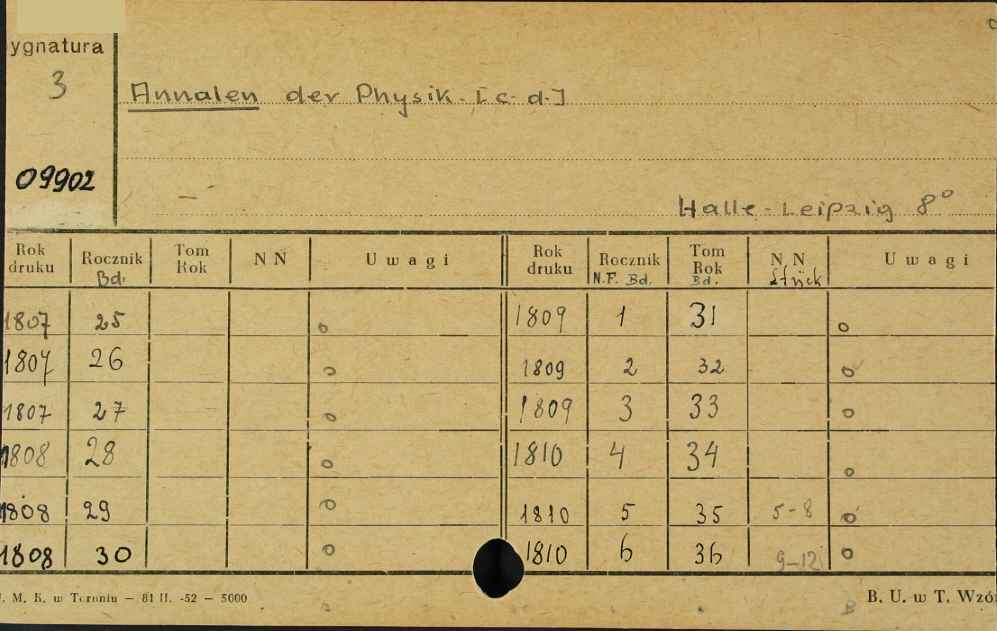 ygnatura
3
Annalen der Physik. [c. d.]
09902
Halle-Leipzig 8°
Rok druku Rocznik Bd. Tom Rok NN Uwagi Rok druku Rocznik N.F. Bd. Tom Rok Bd. N.N. Stück Uwagi
1807 25 o 1809 1 31 o
1807 26 o 1809 2 32 o
1807 27 o 1809 3 33 o
1808 28 o 1810 4 34 o
1808 29 o 1810 5 35 5-8 o
1808 30 o 1810 6 36 9-12 o
. M. K. w Toruniu — 81 II. -52 — 5000
B. U. w T. Wzó